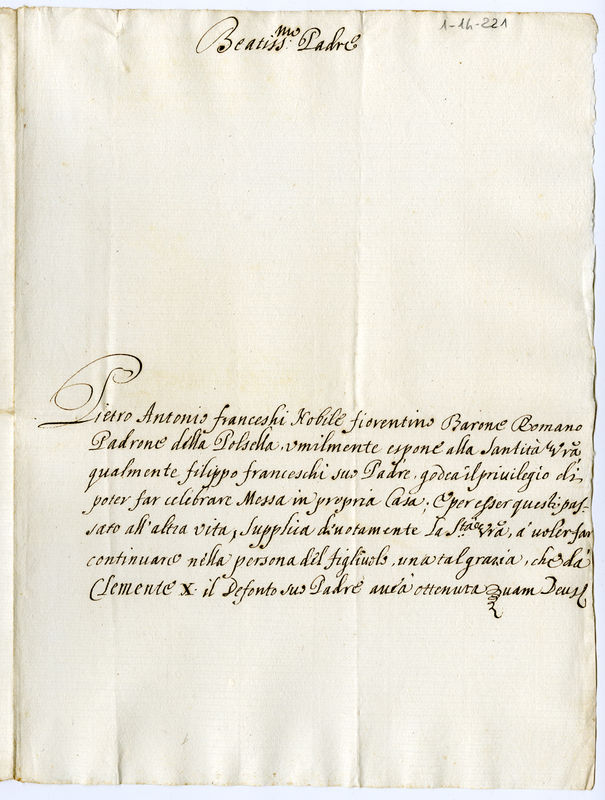 1-14-221
Beatiss.mo Padre
Pietro Antonio franceshi Nobile fiorentino Barone Romano
Padrone della Polsella, vmilmente espone alla Santità Vrã
qualmente filippo franceshi suo Padre, godea il priuilegio di
poter far celebrare Messa in propria Casa; E per esser questi pas-
sato all'altra vita, Supplica diuotamente La Stà Vrã, à voler far
continuare nella persona del figliuolo, una tal grazia, che dà
Clemente X. il Defonto suo Padre auea ottenuta Quam Deus